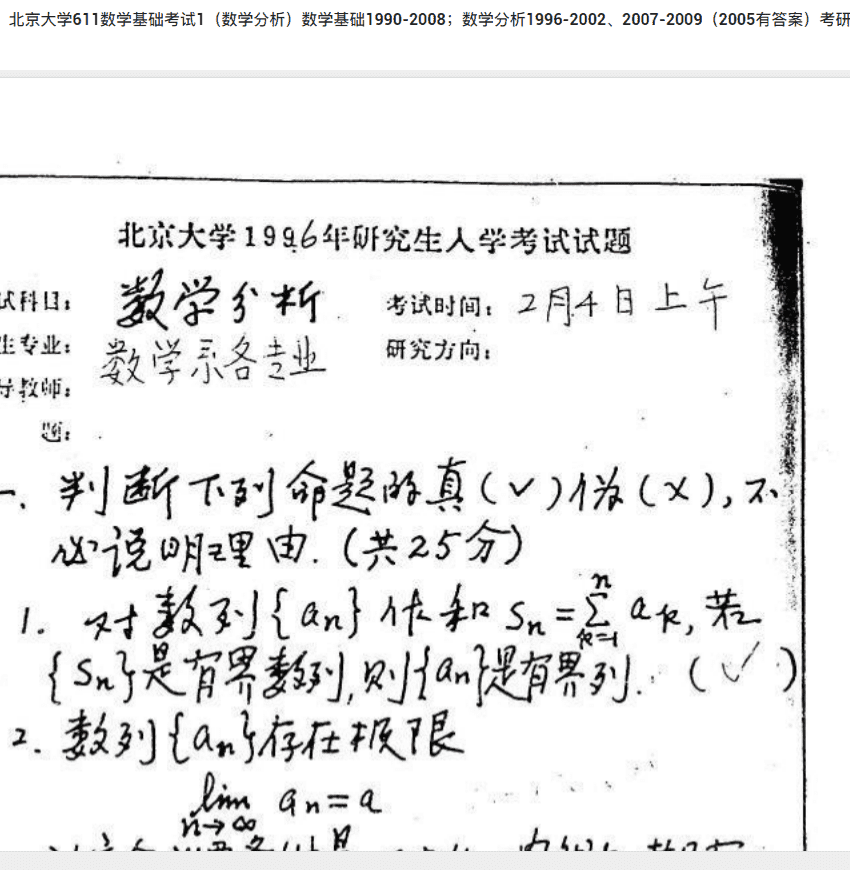 北京大学611数学基础考试1（数学分析）数学基础1990-2008；数学分析1996-2002、2007-2009（2005有答案）考研
北京大学1996年研究生入学考试试题
试科目： 数学分析 考试时间：2月4日上午
生专业： 数学系各专业 研究方向：
导教师：
题：
一. 判断下列命题的真(√)伪(×),不
必说明理由.(共25分)
1. 对数列{an}作和 Sn=∑_{k=1}^{n} ak, 若
{Sn}是有界数列,则{an}是有界列. (√)
2. 数列{an}存在极限
lim_{n→∞} an=a